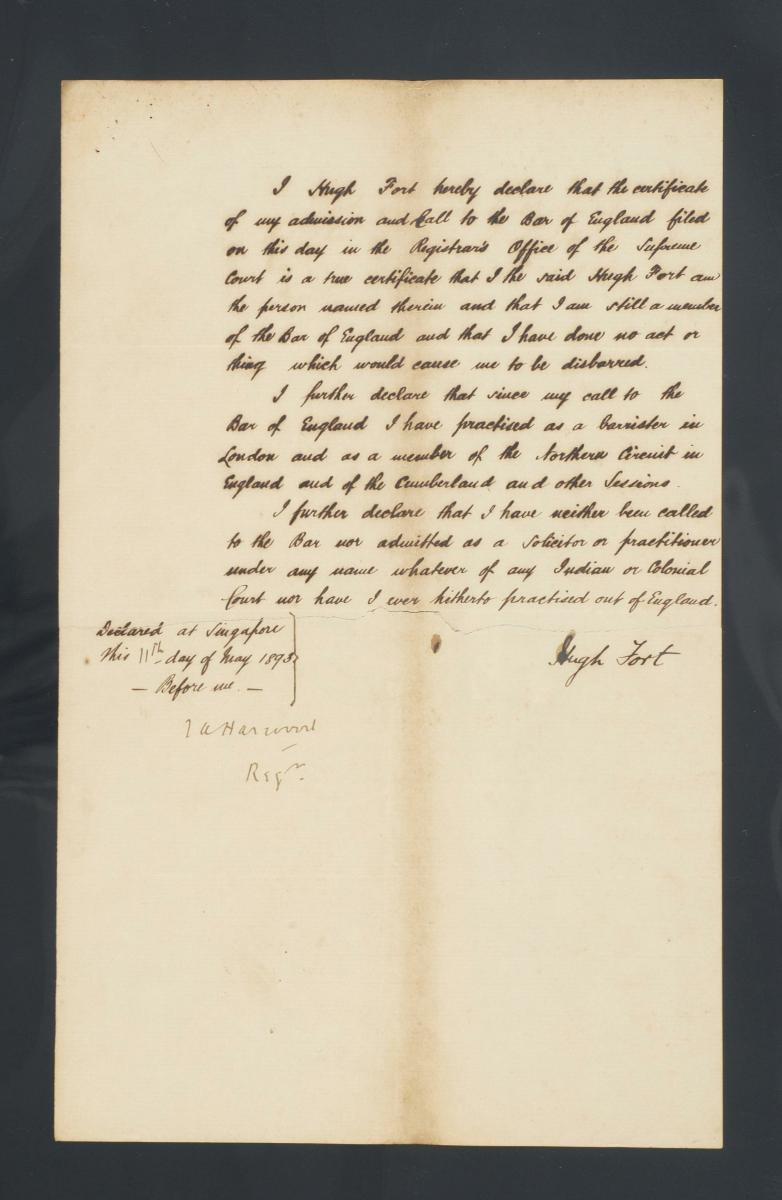 I Hugh Fort hereby declare that the certificate
of my admission and Call to the Bar of England filed
on this day in the Registrar's Office of the Supreme
Court is a true certificate that I the said Hugh Fort am
the person named therein and that I am still a member
of the Bar of England and that I have done no act or
thing which would cause me to be disbarred.
I further declare that since my call to the
Bar of England I have practised as a barrister in
London and as a member of the Northern Circuit in
England and of the Cumberland and other Sessions.
I further declare that I have neither been called
to the Bar nor admitted as a Solicitor or practitioner
under any name whatever of any Indian or Colonial
Court nor have I ever hitherto practised out of England.
Declared at Singapore
this 11th day of May 1893
— Before me. —
Hugh Fort
Harwood
Regr.